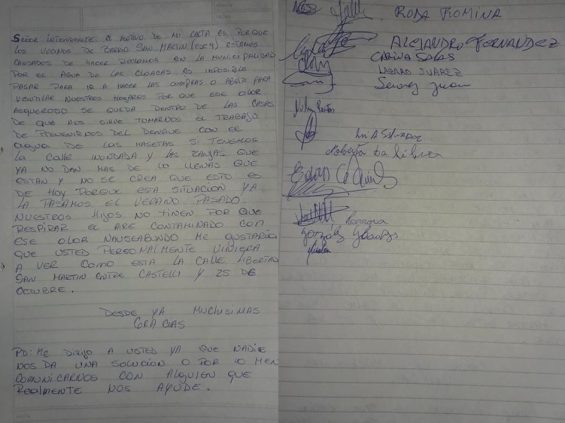 SEÑOR INTENDENTE: EL MOTIVO DE MI CARTA ES PORQUE
LOS VECINOS DE BARRIO SAN MARTIN ESTAMOS
CANSADOS DE HACER RECLAMOS EN LA MUNICIPALIDAD
POR EL AGUA DE LAS CLOACAS ES IMPOSIBLE
PASAR PARA IR A HACER LAS COMPRAS O ABRIR PARA
VENTILAR NUESTROS HOGARES POR QUE ESE OLOR
ASQUEROSO SE QUEDA DENTRO DE LAS CASAS
DE QUE NOS SIRVE TOMARNOS EL TRABAJO
DE PREVENIRNOS DEL DENGUE CON EL
DE LAS MASETAS SI TENEMOS
LA CALLE INUNDADA Y LAS ZANJAS QUE
YA NO DAN MAS DE LO LLENAS QUE
ESTAN Y NO SE CREA QUE ESTO ES
DE HOY PORQUE ESA SITUACION YA
LA PASAMOS EL VERANO PASADO
NUESTROS HIJOS NO TINEN POR QUE
RESPIRAR EL AIRE CONTAMINADO CON
ESE OLOR NAUSEABUNDO ME GUSTARIA
QUE USTED PERSONALMENTE VINIERA
A VER COMO ESTA LA CALLE LIBERTADOR
SAN MARTIN ENTRE CASTELLI Y 25 DE
OCTUBRE.
DESDE YA MUCHISIMAS
GRACIAS
PD: ME DIRIJO A USTED YA QUE NADIE
NOS DA UNA SOLUCION O POR LO MEN
COMUNICARNOS CON ALGUIEN QUE
REALMENTE NOS AYUDE.
RODA ROMINA
ALEJANDRO FERNANDEZ
CARINA SALAS
JUAREZ
Juan
Roberto Da Silva
González Gladys